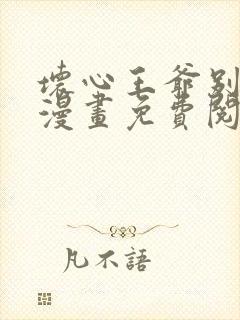 壞心王爺別
漫畫免費閱
凡不語